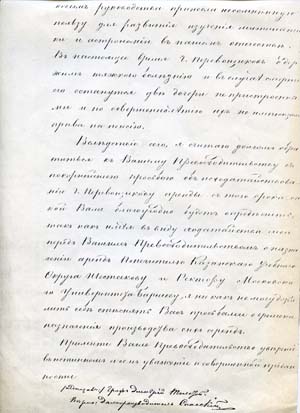 своимъ руководствомъ принесли несомнѣнную
пользу для развитія изученія математи-
ки и астрономіи въ нашемъ отечествѣ.
Въ настоящее время Г. Перевощиковъ одер-
жимъ тяжкою болѣзнію и въ случаѣ смерти
останутся двѣ дочери не пристроен-
ныя и по совершеннолѣтію ихъ не имѣющія
права на пенсію.
Вслѣдствіе сего, я считаю долгомъ обра-
титься къ Вашему Превосходительству съ
покорнѣйшею просьбою объ исходатайствованіи
Г. Перевощикову аренды съ того срока, ка-
кой Вами благоугодно будетъ опредѣлить,
такъ какъ имѣя въ виду ходатайства мои
предъ Вашимъ Превосходительствомъ о назна-
ченіи арендъ Попечителю Казанскаго Учебнаго
Округа Шестакову и Ректору Московска-
го Университета Баршеву, я ни какъ не полагалъ бы
себѣ стѣснять Васъ просьбами о срокахъ
назначенія производства сихъ арендъ.
Примите Ваше Превосходительство увѣреніе
въ истинномъ моемъ уваженіи и совершенной предан-
ности.
Графъ Дмитрій Толстой.